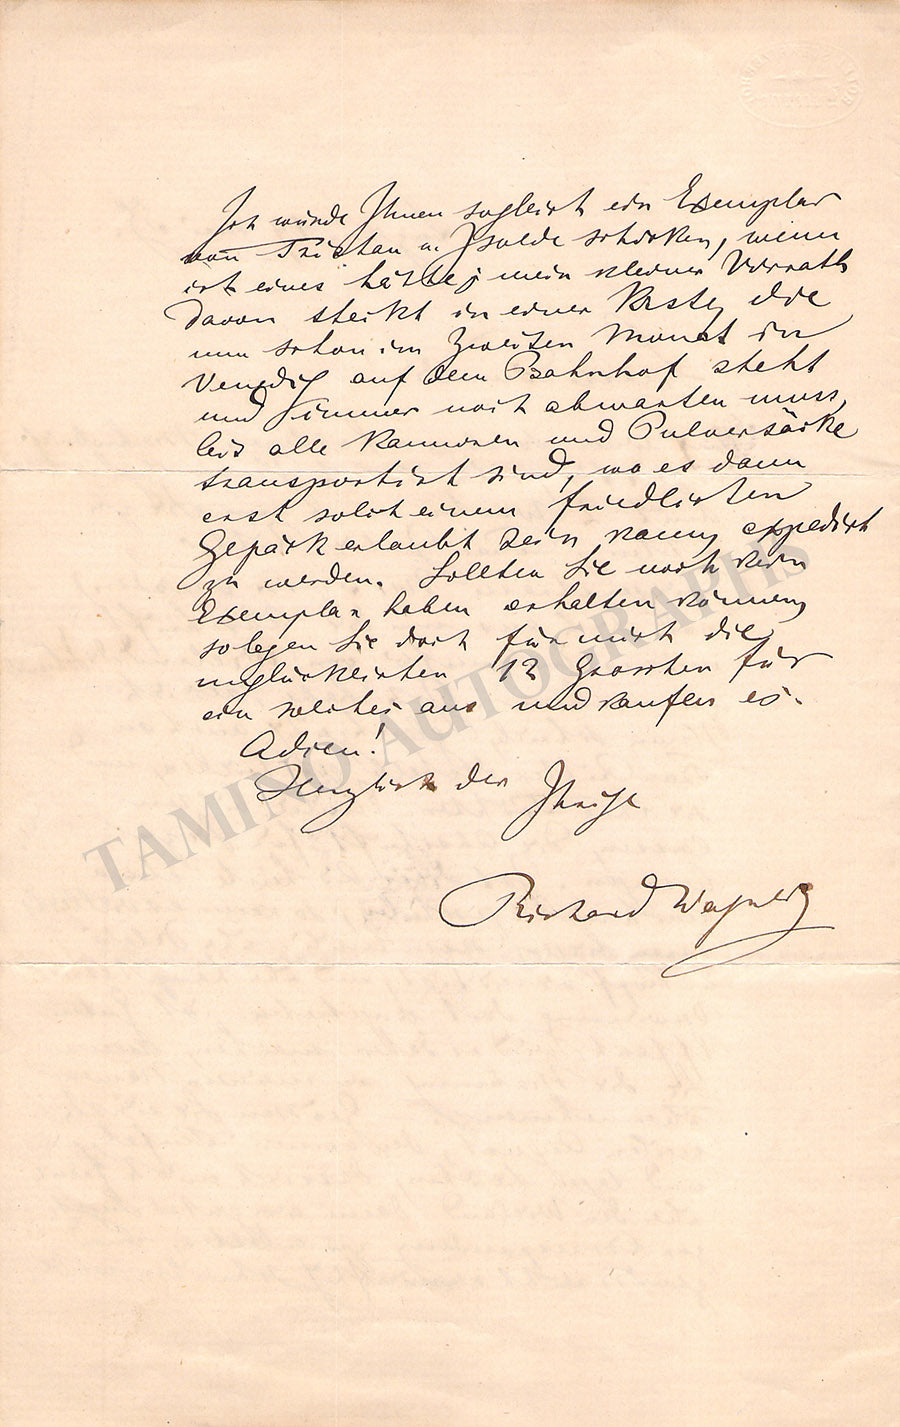 Ich würde Ihnen sogleich ein Exemplar
von Tristan u. Isolde schicken, wenn
ich eines hätte; mein kleiner Vorrath
davon steckt in einer Kiste, die
nun schon im zweiten Monat in
Venedig auf dem Bahnhof steht
und immer noch abwarten muss,
bis alle Kannonen und Pulversäcke
transportirt sind, wo es dann
erst solch einem friedlichen
Gepäck erlaubt sein kann, expedirt
zu werden. Sollten Sie noch kein
Exemplar haben erhalten können,
so legen Sie doch für mich die
unglücklichen 12 Groschen für
ein solches aus und kaufen es.
Adieu!
Herzlich der Ihrige
Richard Wagner
TAMINO AUTOGRAPHS